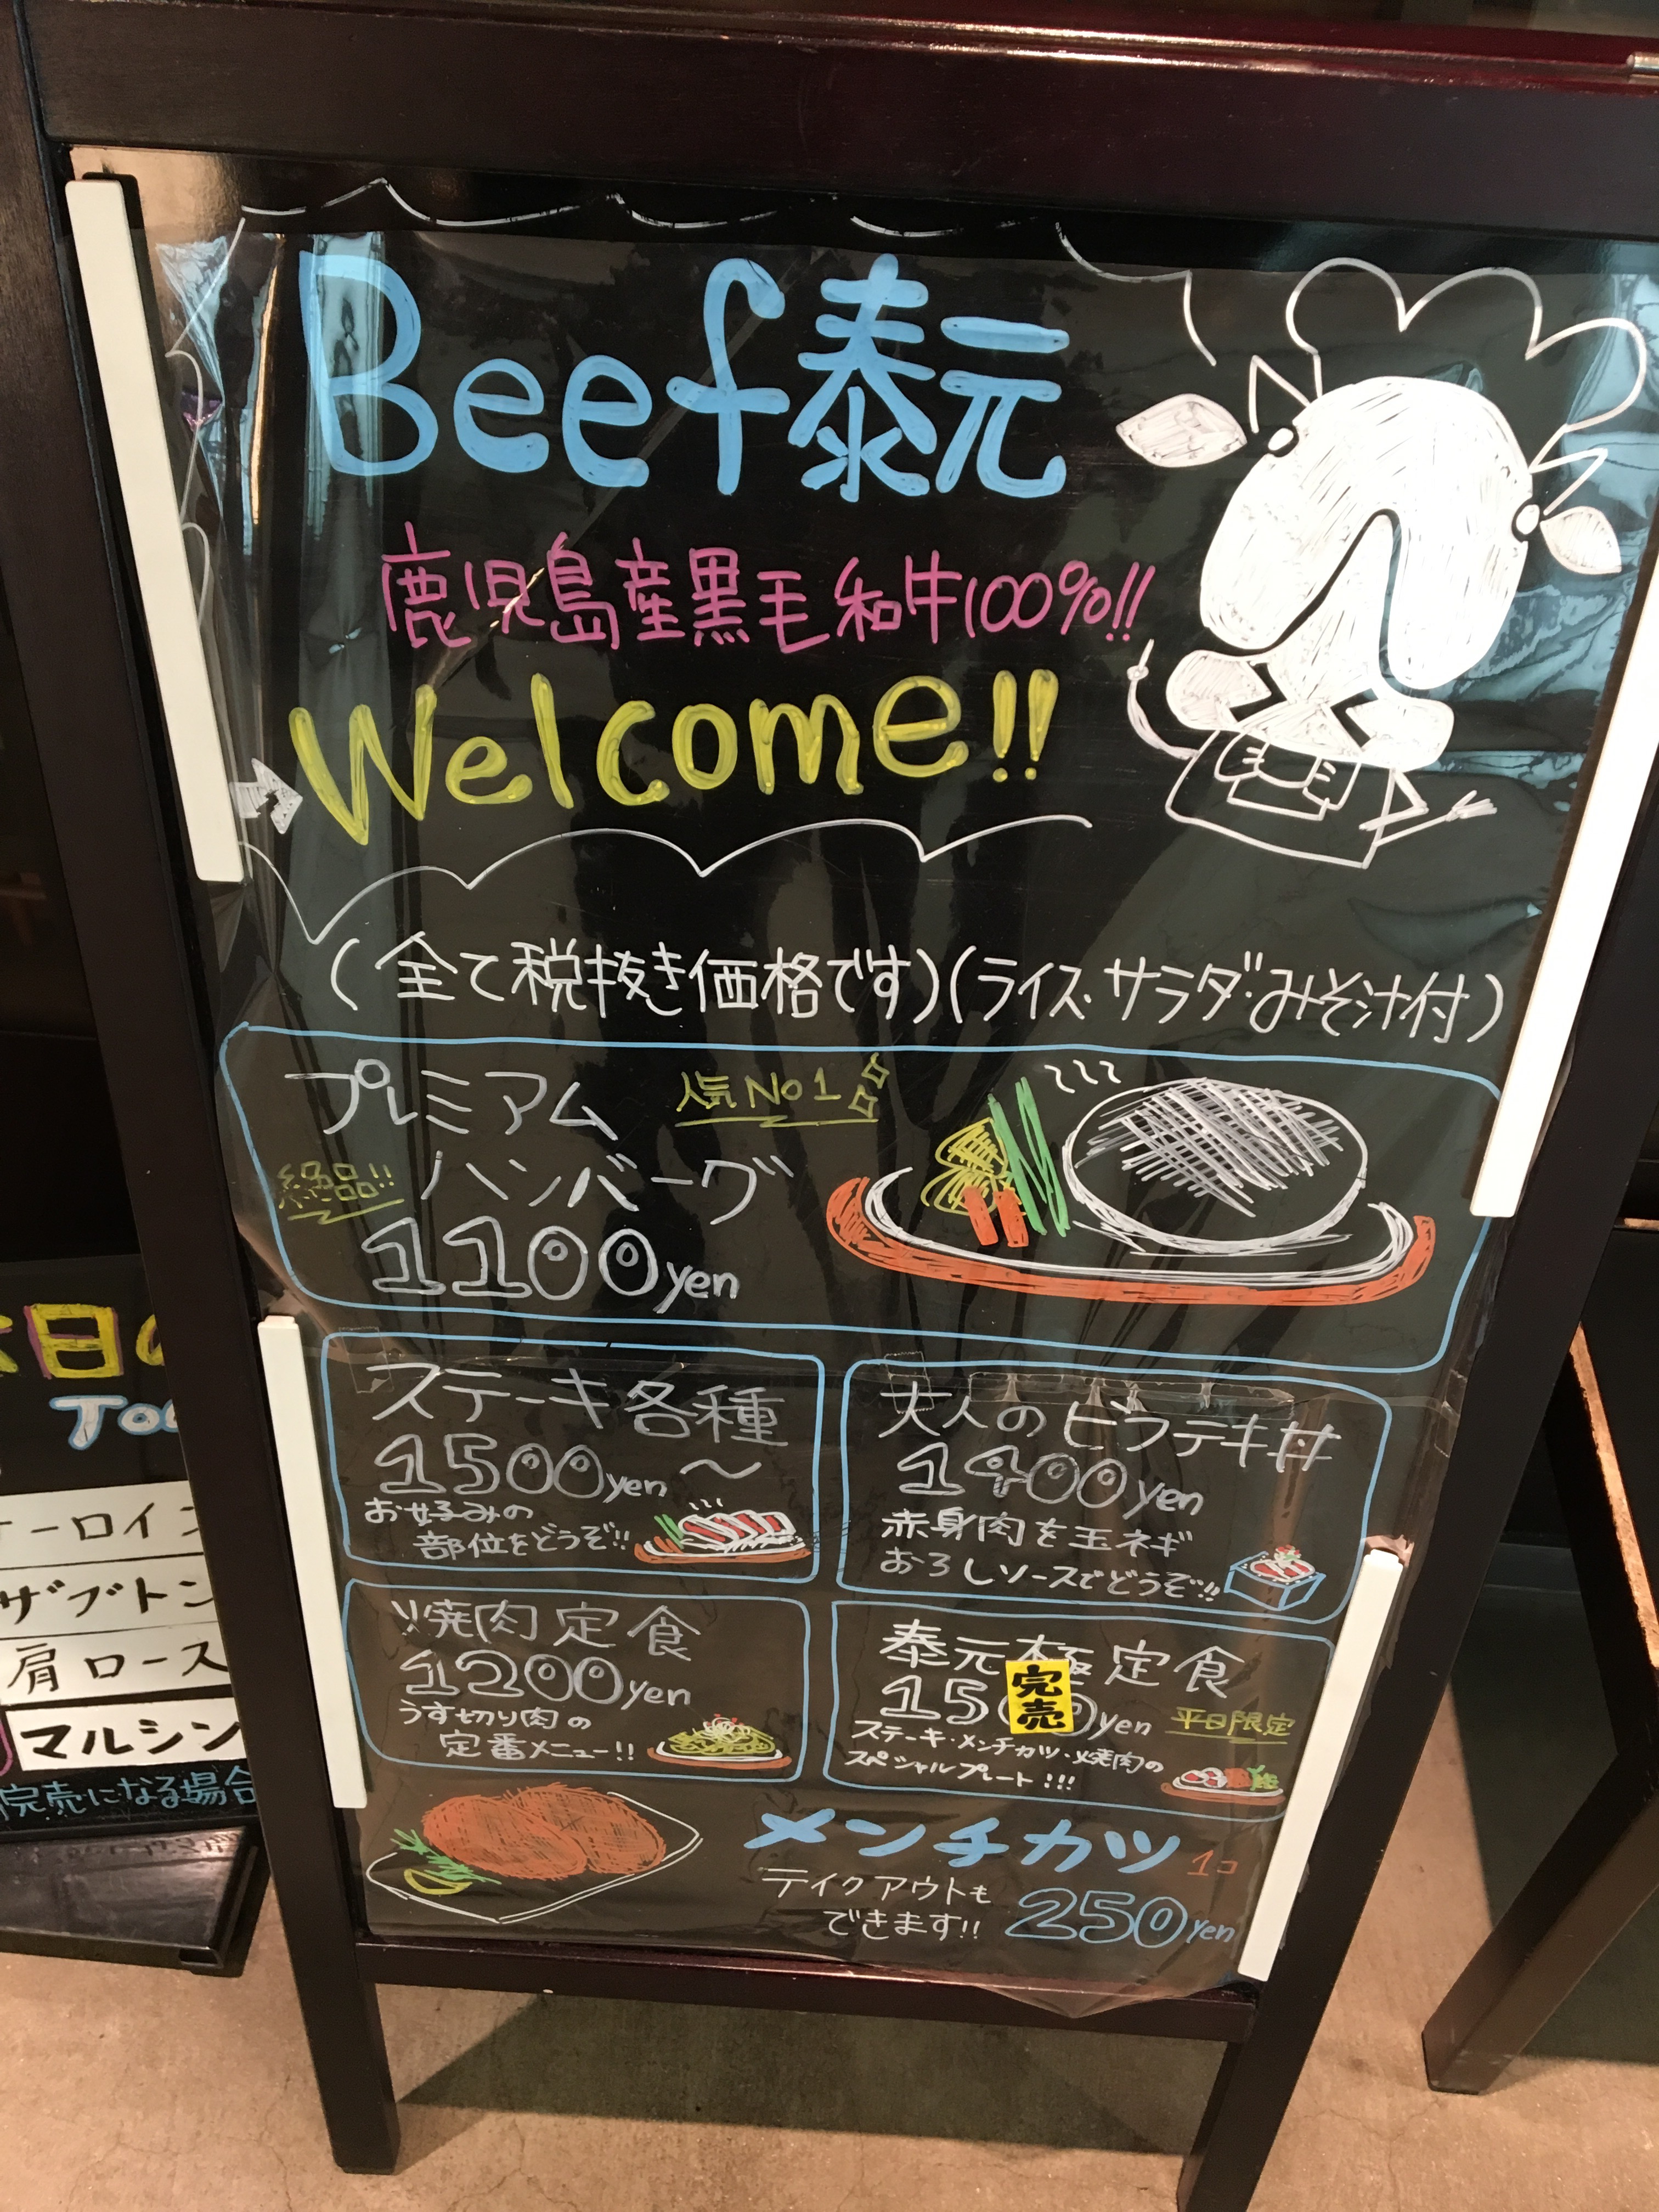 Beef泰元
鹿児島産黒毛和牛100%!!
Welcome!!
(全て税抜き価格です)(ライス・サラダ・みそ汁付)
プレミアム
人気No1
絶品!!
ハンバーグ
1100yen
ステーキ各種
1500yen〜
お好みの
部位をどうぞ!!
大人のビフテキ丼
1400yen
赤身肉を玉ネギ
おろしソースでどうぞ!!
焼肉定食
1200yen
うす切り肉の
定番メニュー!!
泰元極定食
1500yen
完売
平日限定
ステーキ・メンチカツ・焼肉の
スペシャルプレート!!!
メンチカツ
1コ
テイクアウトも
できます!!
250yen
日の
サーロイン
ザブトン
肩ロース
マルシン
完売になる場合